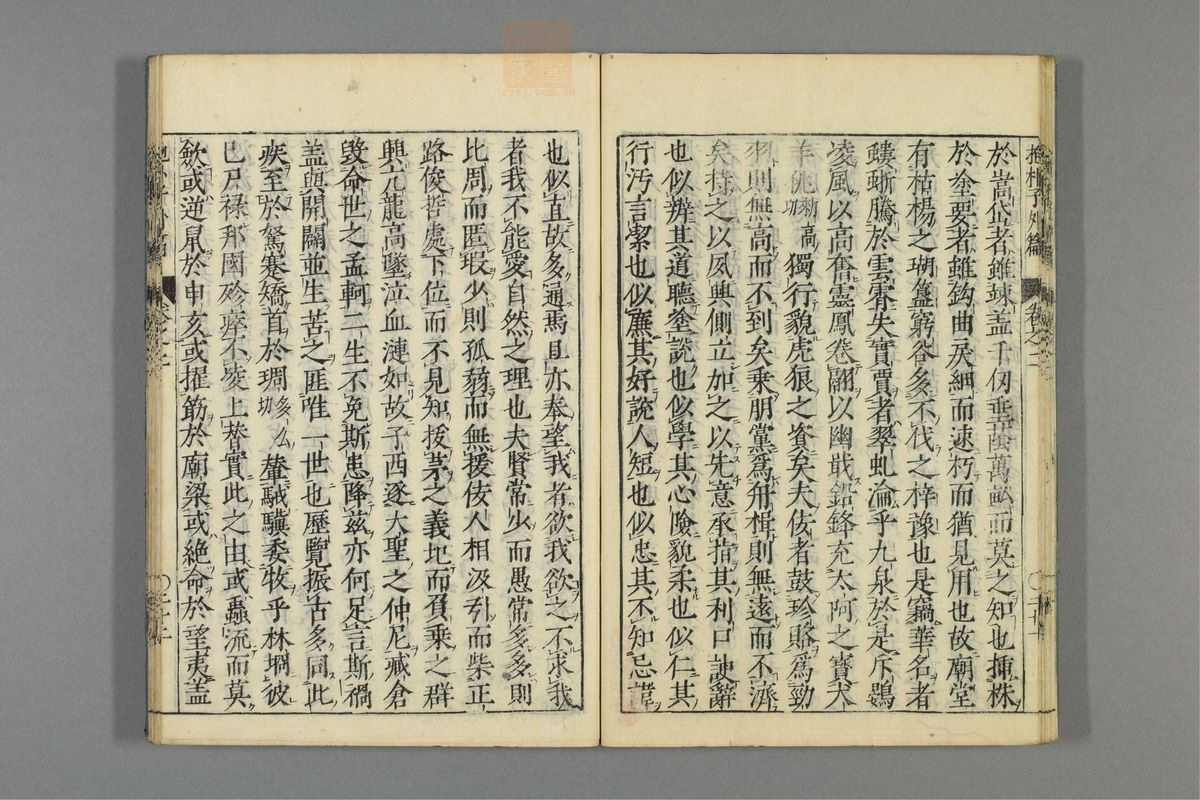 抱朴子外篇 卷之二
於嵩岱者雖竦蓋千仞垂蔭萬畝而莫之知也插株
於塗要者雖鈎曲戾細而速朽而猶見用也故廟堂
有枯楊之瑚簋窮谷多不伐之梓豫也是竊華名者
螻蜥騰於雲霄失實賈者翠虬淪乎九泉於是斥鷃
凌風以高奮靈鳳卷翮以幽戢鉛鋒充太阿之寶犬
羊佻 高 獨行貌虎狼之資矣夫佞者鼓珍賂爲勁
羽則無高而不到矣乘朋黨爲舟楫則無遠而不濟
矣持之以夙興側立加之以先意承指其利口諛辭
也似辨其道聽塗說也似學其心險貌柔也似仁其
行汚言潔也似廉其好說人短也似忠其不知忌諱
也似直故多通焉且亦奉望我者欲我欲之不求我
者我不能愛自然之理也夫賢常少而愚常多多則
比周而匿瑕少則孤弱而無援佞人相汲引而柴正
路俊哲處下位而不見知拔茅之義圮而負乘之群
興亢龍高墜泣血漣如故子西逐大聖之仲尼臧倉
毀命世之孟軻二生不免斯患降兹亦何足言斯禍
蓋與開闢並生苦之匪唯一世也歷覽振古多同此
疾至於駑蹇矯首於琱 多么功 輦駥驥委牧乎林坰彼
己尸祿邦國殄瘁下凌上替實此之由或蟲流而莫
斂或逆鼠於申亥或擢筋於廟梁或絕命於望夷蓋
zynj.com.cn